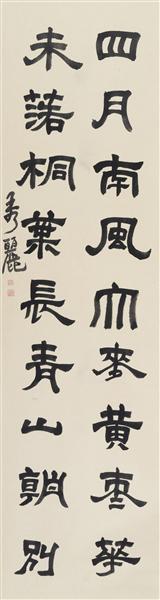 四月南風大麥黃棗華
未落桐葉長青山朝別
秀麗